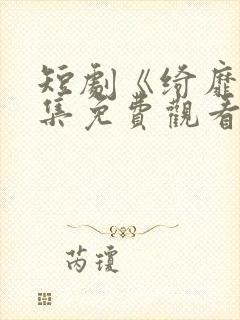 短劇《綺靡
集免費觀看
芮瓊